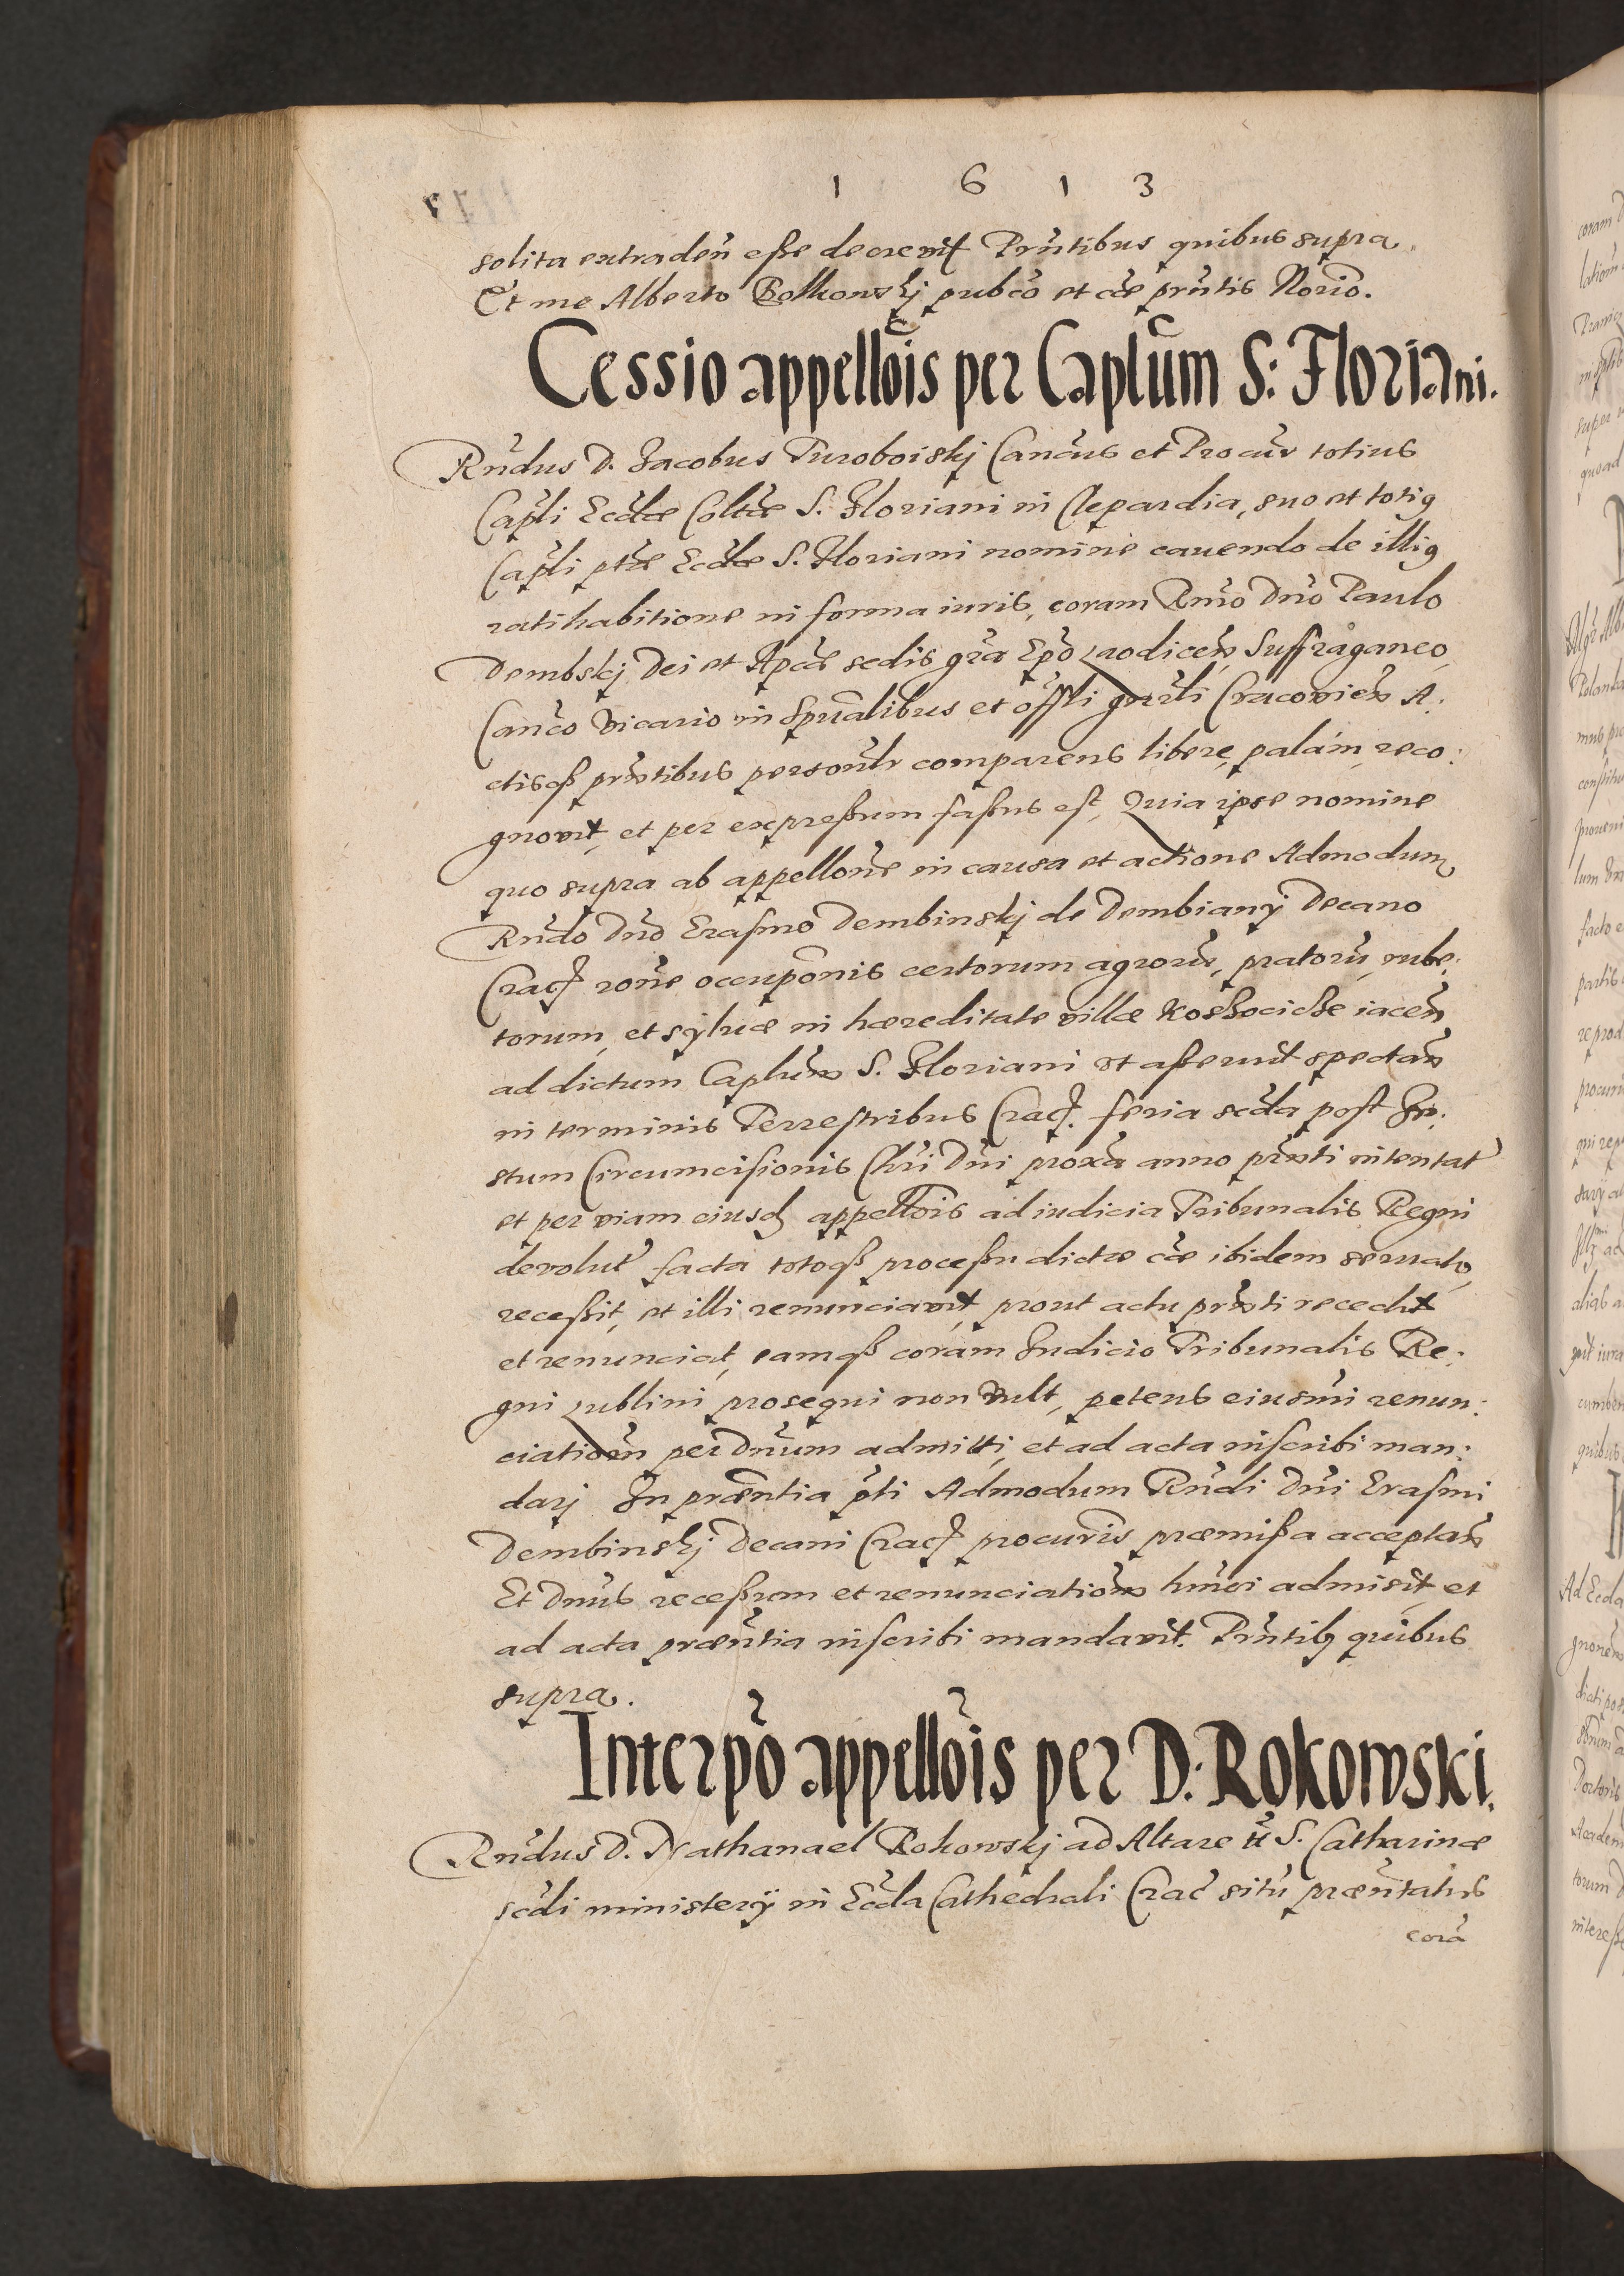 1 6 1 3
solita extraden̄ eſse decrevit Prñtibus quibus supra.
Et me Alberto Belkowskj pubco et cæ prñtis Norio.
Cessio appellõis per Caplum S: Floriani.
Rñdus D. Jacobus Turoboiskj Cancus et Procur totius
Capli Eccliæ Coltæ S. Floriani in Clepardia, suo et totiꝰ
Capli ptæ Eccliæ S. Floriani nomine cavendo de illiꝰ
ratihabitione in forma iuris, coram Rmo Dno Paulo
Dembskj Dei et Apcæ sedis gra Epo Laodicen̄ Suffraganeo
Canco Vicario in Spualibus et offli gnrli Cracovien̄ A:
ctisqß prñtibus personlr comparens libere, palam, reco:
gnovit, et per expreßum faßus est, Quia ipse nomine
quo supra ab appellone in causa et actione Admodum
Rndo Dno Erasmo Dembinskj de Dembiany Decano
Crac̄ rone occuponis certorum agroru, pratoru, rube:
torum, et sylvæ in hæreditate villæ Koßocicße iacen̄
ad dictum Caplum S. Floriani ut aßerunt spectan̄
in terminis Terrestribus Crac̄. feria scda post Fe:
stum Circumcisionis Chri Dni proxa anno prñti intentat
et per viam eiusd appellois ad iudicia Tribunalis Regni
devolut facta totoqß proceßu dictæ cæ ibidem servato
receßit, et illi renunciavit, prout actu prñti recedit
et renunciat, eamqß coram Judicio Tribunalis Re:
gni Lublini prosequi non Vult, petens eiusmi renun:
ciationem per Dnum admitti, et ad acta inscribi man:
darj In præntia pti Admodum Rndi Dni Erasmi
Dembinskj Decani Crac̄ procuris præmißa acceptan̄
Et Dnus receßum et renunciationem hmoi admisit et
ad acta præntia inscribi mandavit. Prñtibꝰ quibus
supra.
Interpo appellõis per D: Rokowski.
Rñdus D. Nathanael Rokowskj ad Altare tt S. Catharinæ
scdi ministerij in Eccla Cathedrali Crac̄ situ præntatus
corā